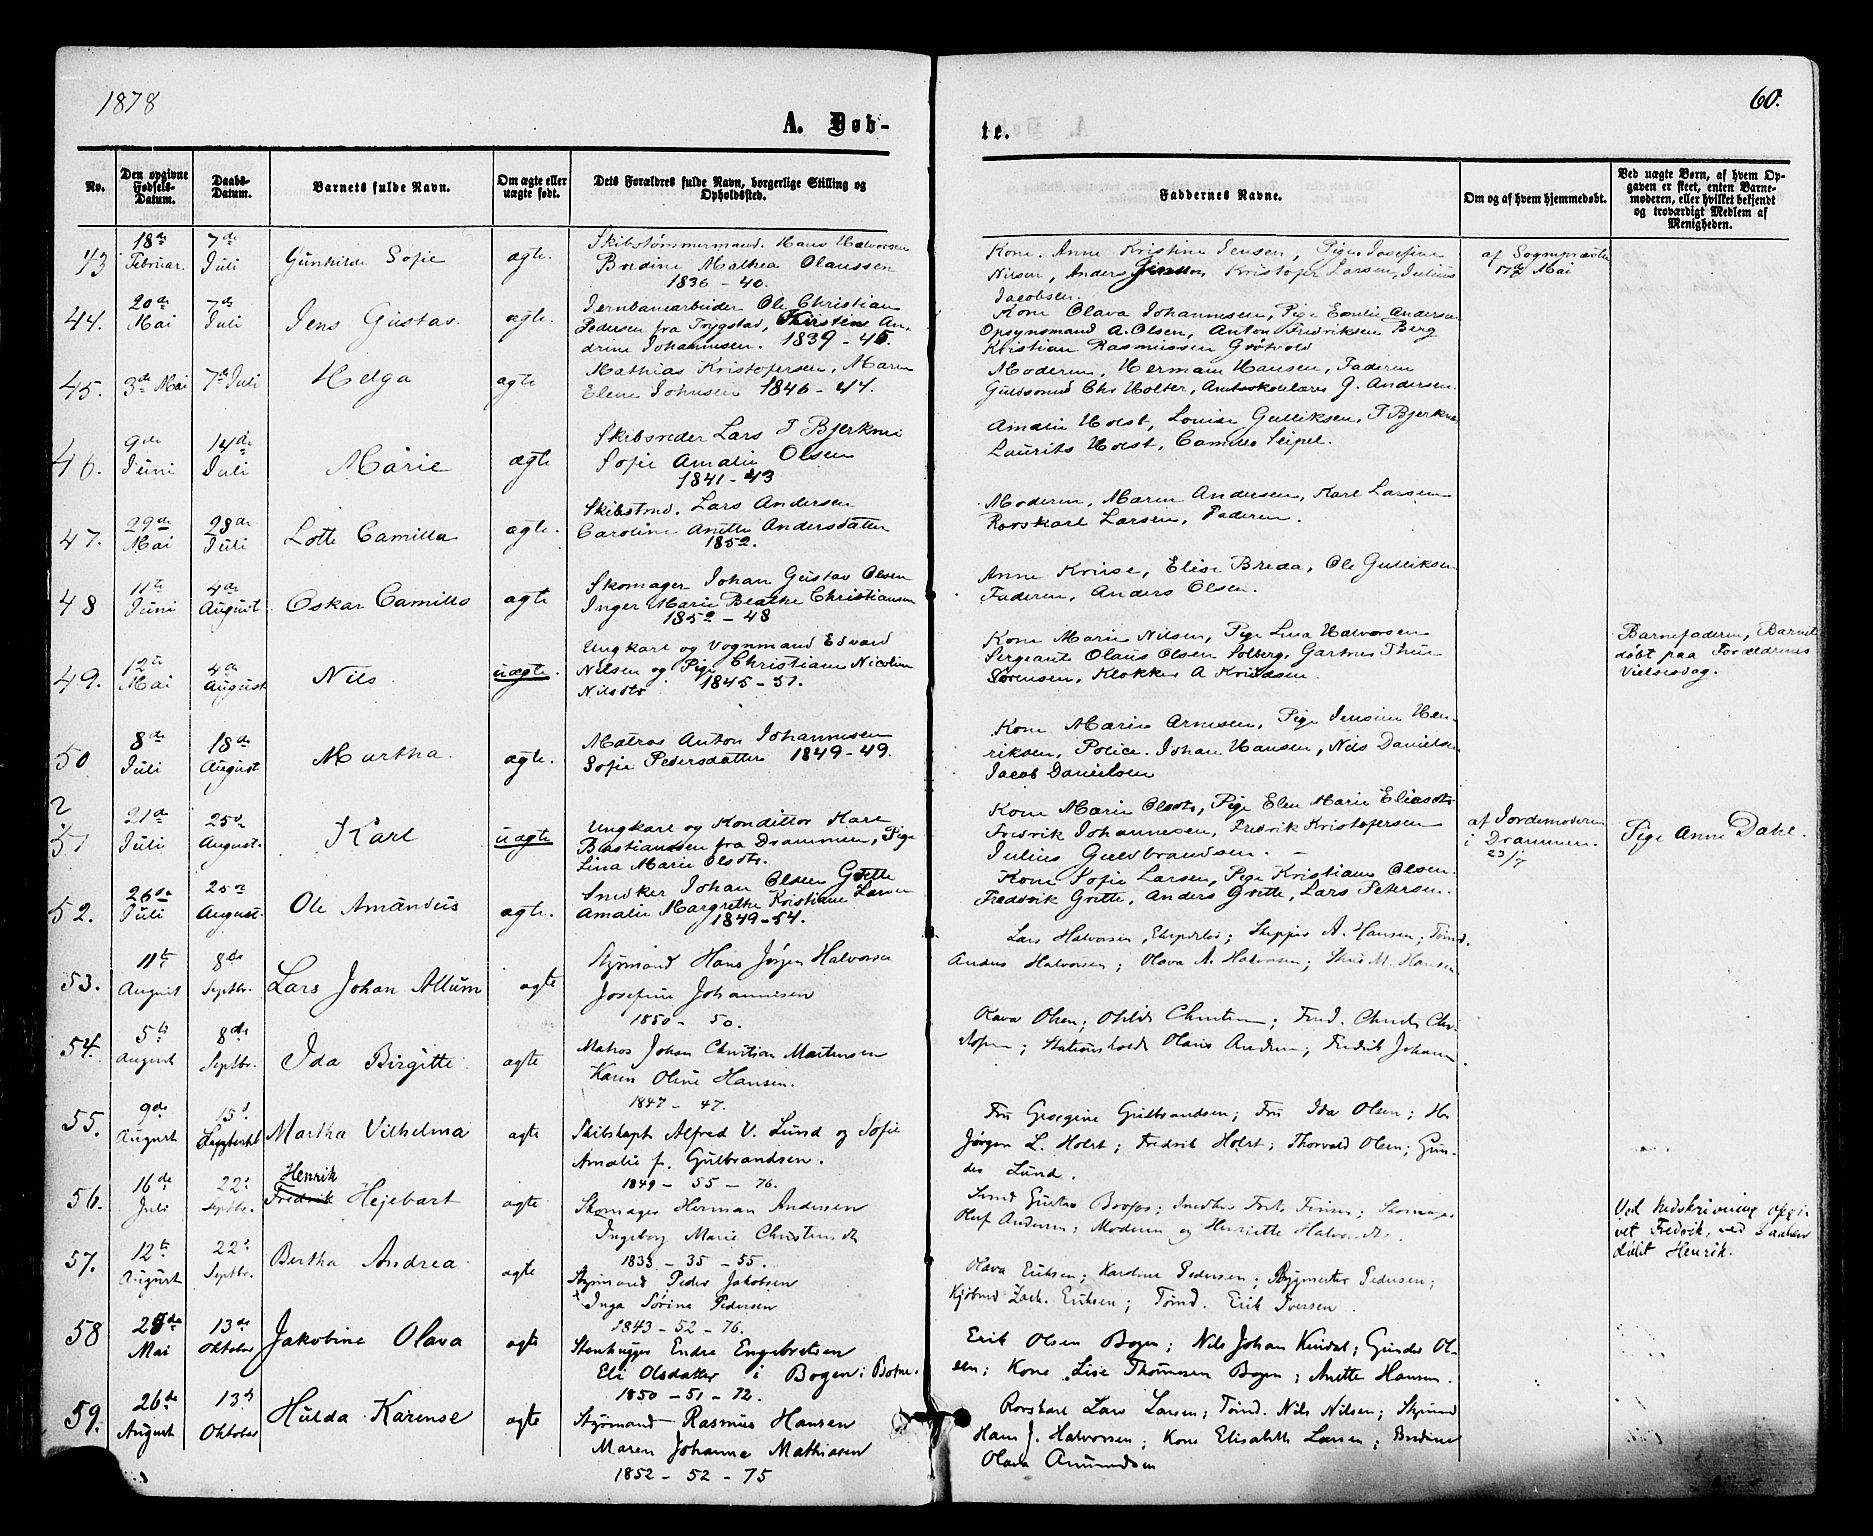 1878
60.
A. Døb-
te.
No.
Den opgivne Fødsels-Datum.
Daabs-Datum.
Barnets fulde Navn.
Om ægte eller uægte født.
Dets Forældres fulde Navn, borgerlige Stilling og Opholdssted.
Faddernes Navne.
Om og af hvem hjemmedøbt.
Ved uægte Børn, af hvem Op-
gaven er skeet, enten Barne-
moderen, eller hvilket bekjendt
og troværdigt Medlem af
Menigheden.
43 18de Februar. 7de Juli Gunhilde Sofie ægte.
Skibstømmermand. Hans Halvorsen
Bordine Mathea Olaussen
1836 - 40.
Kone. Anne Kristine Jensen, Pige Josefine
Nilsen, Anders Jensen, Kristofer Larsen, Julius
Jacobsen.
af Sognepræsten
17de Mai
44. 20de Mai 7de Juli Jens Gustav. ægte.
Jernbanearbeider Ole Christian
Pedersen fra Trygstad, Kirstine An-
drine Johannesen. 1839 - 45.
Kone Olava Johannesen, Pige Emilie Andersen
Opsynsmand A. Olsen, Anton Fredriksen Berg
Kristian Rasmussen Grøtvold
45. 3de Mai 7de Juli Helga ægte
Mathias Kristofersen, Maren
Elene Johnsen 1846 - 44.
Moderen, Herman Hansen, Faderen
Guldsmed Chr Holter, Amtsskolelærer G. Andersen.
46. 9de Juni 14de Juli Marie ægte
Skibsreder Lars J Bjerknes
Sofie Amalie Olsen
1841 - 43
Amalie Holst, Louise Gulliksen, J Bjerknes
Laurits Holst, Camillo Seipel.
47. 29de Mai 28de Juli Lotte Camilla ægte.
Skibstmd. Lars Andersen
Caroline Anette Andersdatter
1852.
Moderen, Maren Andersen, Karl Larsen
Rorskarl Larsen, Faderen.
48 11te Juni 4de August Oskar Camillo ægte
Skomager Johan Gustav Olsen
Inger Marie Beathe Christiansen
1852 - 48
Anne Kruse, Elise Breda, Ole Gulliksen
Faderen, Anders Olsen.
49. 12te Mai 4de August Nils uægte.
Ungkarl og Vognmand Edvard
Nilsen og Pige Christiane Nicoline
Nilsdtr 1845 - 51.
Kone Marie Nilsen, Pige Lina Halvorsen
Sergeant Olaus Olsen Solberg, Gartner Thur
Sørensen, Klokker A Knudsen.
Barnefaderen, Barnet
døbt paa Forældrenes
Vielsesdag.
50 8de Juli 18de August Martha. ægte.
Matros Anton Johannesen
Sofie Pedersdatter 1849 - 49.
Kone Marie Arnesen, Pige Jensine Hen-
riksen, Police. Johan Hansen, Nils Danielsen
Jacob Danielsen
2
51 21de Juli 25de August. Karl uægte
Ungkarl og Konditor Karl
Bastianssen fra Drammen, Pige
Lina Marie Olsdtr.
Kone Marie Olsdtr, Pige Elen Marie Eliasdtr
Fredrik Johannesen, Fredrik Kristofersen
Julius Gulbrandsen. -
af Jordemoderen
i Drammen.
23/7
Pige Anne Dahl.
52. 26de Juli 25de August. Ole Amandus ægte.
Snedker Johan Olsen Grette
Amalie Margrethe Kristiane Larsen
1849 - 54.
Kone Sofie Larsen, Pige Kristiane Olsen.
Fredrik Grette, Anders Grette, Lars Petersen.
53. 11te August 8de Septbr. Lars Johan Allum ægte
Styrmand Hans Jørgen Halvorsen
Josefine Johannesen
1850 - 50.
Lars Halvorsen, ; Skipper A. Hansen; Tømd.
Anders Halvorsen; Olava A. Halvorsen; M. Hansen
54. 5te August 8de Septbr. Ida Birgitte ægte
Matros Johan Christian Martensen
Karen Oline Hansen.
1847 - 47.
Olava Olsen; ; Tmd. Chri-
stofersen; Olaus ; Fredrik Johan
55. 9de August 15d. Septembr Martha Vilhelma ægte
Skibskapt. Alfred V. Lund og Sofie
Amalie f. Gulbrandsen.
1849 - 55 - 76.
Fru Georgine Gulbrandsen; Fru Ida Olsen; Hr
Jørgen L. Holst; Fredrik Holst; Thorvald Olsen; Gun-
der Lund.
56. 16de Juli 22d Septbr. Henrik Fredrik Hejebart ægte
Skomager Herman Andersen
Ingeborg Marie Christensdtr
1833 - 35 - 55.
Gustav ; Snedker ; Skomager
Oluf Andersen; Moderen og Henriette Halvorsdtr.
Ved Indskrivning opgi-
vet Fredrik, ved Daaben
døbt Henrik.
57. 12te August 22d Septbr. Bertha Andrea ægte
Styrmand Peder Jakobsen
Inga Sørine Pedersen
1843 - 52 - 76.
Olava Eriksen; Karoline Pedersen; Bygmester Pedersen;
Kjøbmd Zach. Eriksen; Tømd. Erik Iversen.
58 25de Mai 13de Oktober Jakobine Olava ægte
Stenhugger Endre Engebretsen
Eli Olsdatter i Bogen i Botne.
1850 - 51 - 72.
Erik Olsen Bogen; Nils Johan ; Gunder Ol-
sen; Kone Lise Thomesen Bogen; Anette Hansen.
59. 26de August 13d Oktober Hulda Karense ægte
Styrmand Rasmus Hansen
Maren Johanne Mathiasen
1852 - 52 - 75
Rorskarl Lars Larsen; Tømd. Nils Nilsen; Styrmd
Hans J. Halvorsen; Kone Elisabeth Larsen; Bredine
Olava Amundsen